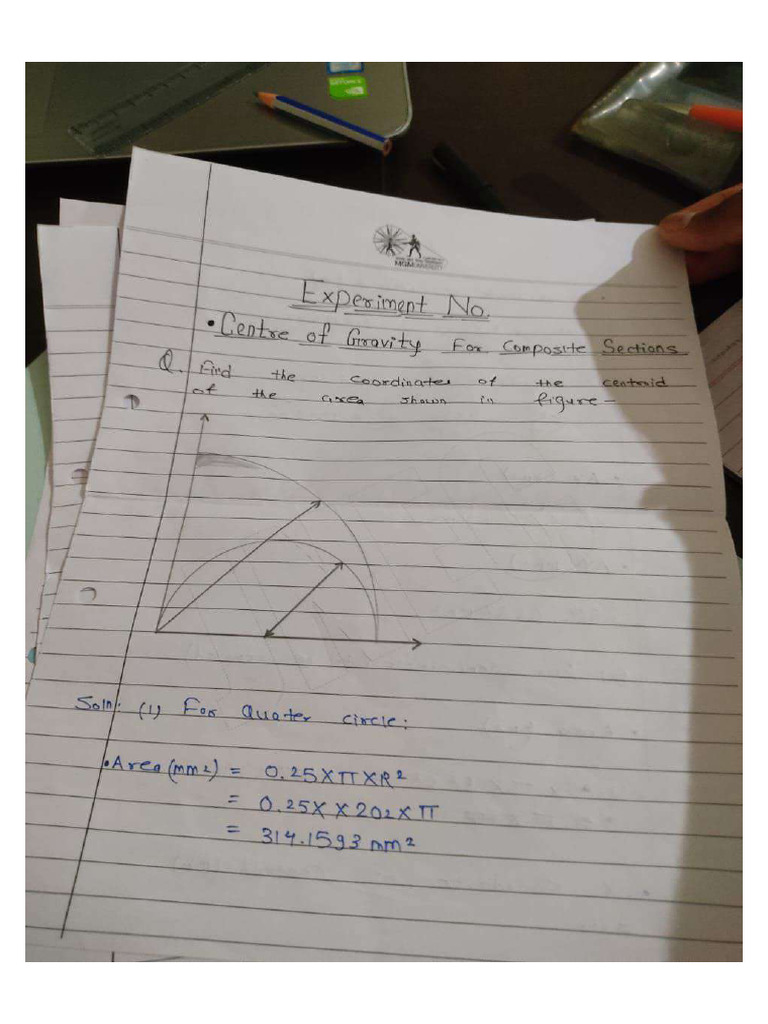 Experiment No.
• Centre of Gravity For Composite Sections
Q. Find the coordinates of the centroid
of the area shown in figure –
Soln: (1) For Quater circle:
• Area (mm2) = 0.25 X π X R2
= 0.25 X X 202 X π
= 314.1593 mm2